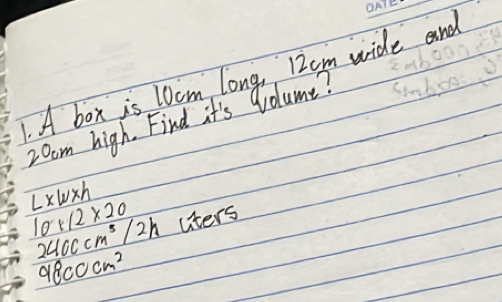 DATE
1. A box is 10cm long, 12cm wide and
20cm high. Find it's volume?
LxWxh
10 x 12 x 20
2400cm³ / 2h liters
9800cm²